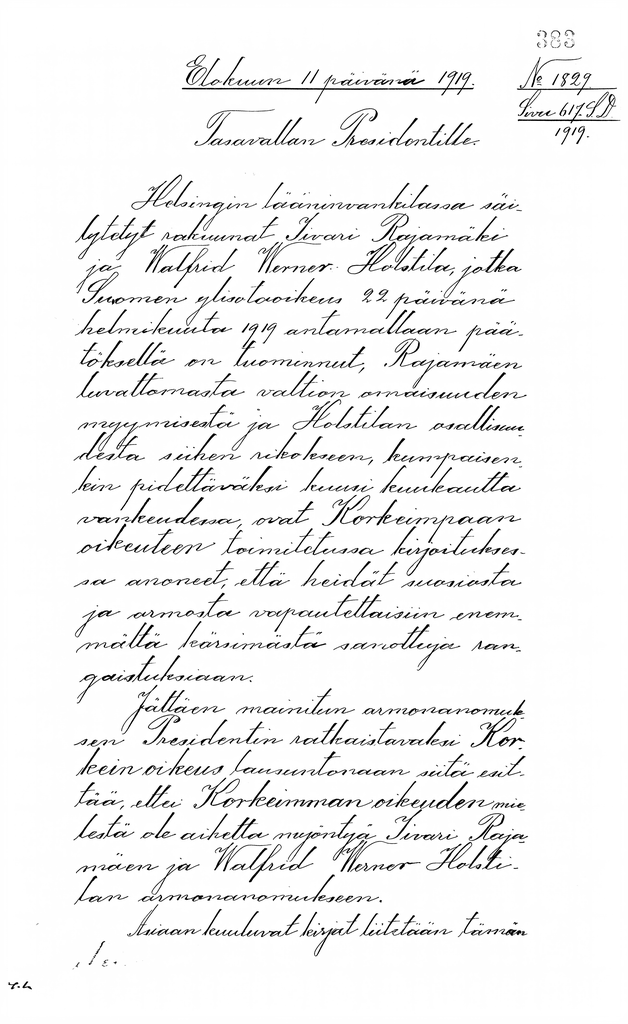 383
Elokuun 11 päivänä 1919.
No 1829
Sivu 617. S.D.
1919.
Tasavallan Presidentille.
Helsingin lääninvankilassa säi-
lytetyt rakuunat Iivari Rajamäki
ja Walfrid Werner Holstila, jotka
Suomen ylisotaoikeus 22 päivänä
helmikuuta 1919 antamallaan pää-
töksellä on tuominnut, Rajamäen
luvattomasta valtion omaisuuden
myymisestä ja Holstilan osallisuu-
desta siihen rikokseen, kumpaisen-
kin pidettäväksi kuusi kuukautta
vankeudessa, ovat Korkeimpaan
oikeuteen toimitetussa kirjoitukses-
sa anoneet, että heidät suosiosta
ja armosta vapautettaisiin enem-
mältä kärsimästä sanottuja ran-
gaistuksiaan.
Jättäen mainitun armonanomuk-
sen Presidentin ratkaistavaksi Kor-
kein oikeus lausuntonaan siitä esit-
tää, ettei Korkeimman oikeuden mie-
lestä ole aihetta myöntyä Iivari Raja-
mäen ja Walfrid Werner Holsti-
lan armonanomukseen.
Asiaan kuuluvat kirjat liitetään tämän